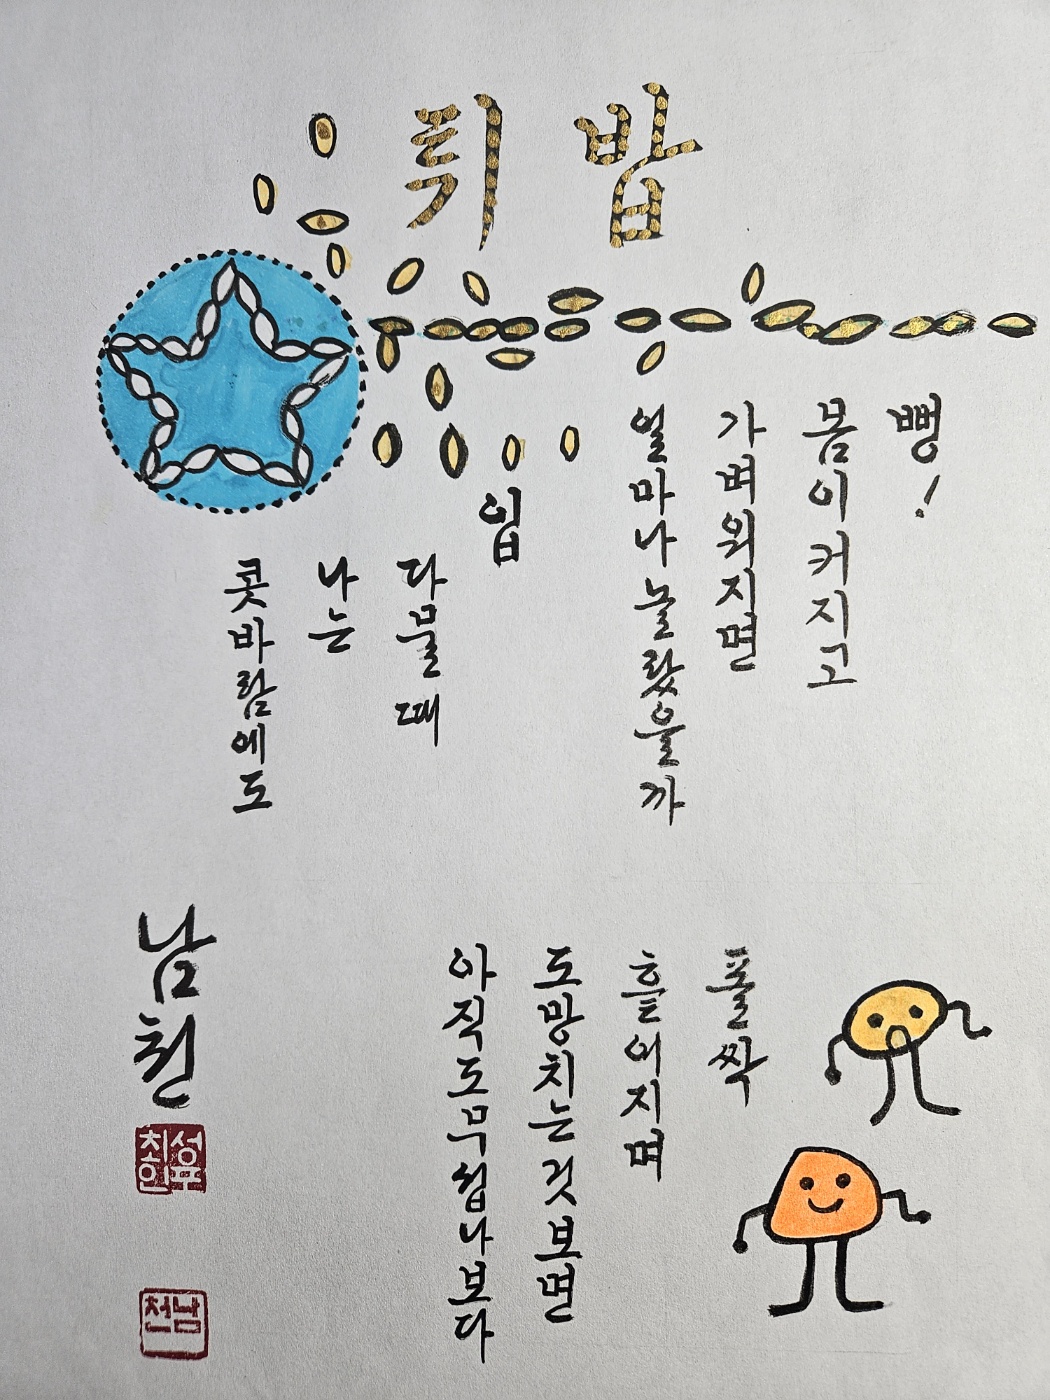 튀밥
뻥!
몸이 커지고
가벼워지면
얼마나 놀랐을까
입
다물 때
나는
콧바람에도
폴싹
흩어지며
도망치는 것 보면
아직도 무섭나 보다
남천
남천